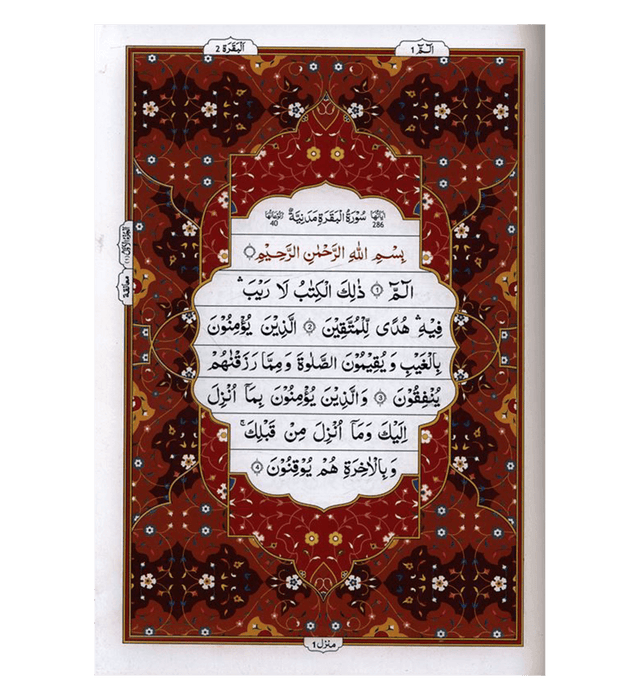 الٓمّٓ 1
البقرة 2
اٰیاتُهَا 286
سُوْرَةُ الْبَقَرَةِ مَدَنِیَّةٌ
رُكُوْعَاتُهَا 40
بِسْمِ اللّٰهِ الرَّحْمٰنِ الرَّحِیْمِ
الٓمّٓ ۝١ ذٰلِكَ الْكِتٰبُ لَا رَیْبَ ۛ
فِیْهِ ۛ هُدًى لِّلْمُتَّقِیْنَ ۝٢ الَّذِیْنَ یُؤْمِنُوْنَ
بِالْغَیْبِ وَ یُقِیْمُوْنَ الصَّلٰوةَ وَ مِمَّا رَزَقْنٰهُمْ
یُنْفِقُوْنَ ۝٣ وَ الَّذِیْنَ یُؤْمِنُوْنَ بِمَاۤ اُنْزِلَ
اِلَیْكَ وَ مَاۤ اُنْزِلَ مِنْ قَبْلِكَ ۚ
وَ بِالْاٰخِرَةِ هُمْ یُوْقِنُوْنَ ۝٤
معانقة
منزل 1